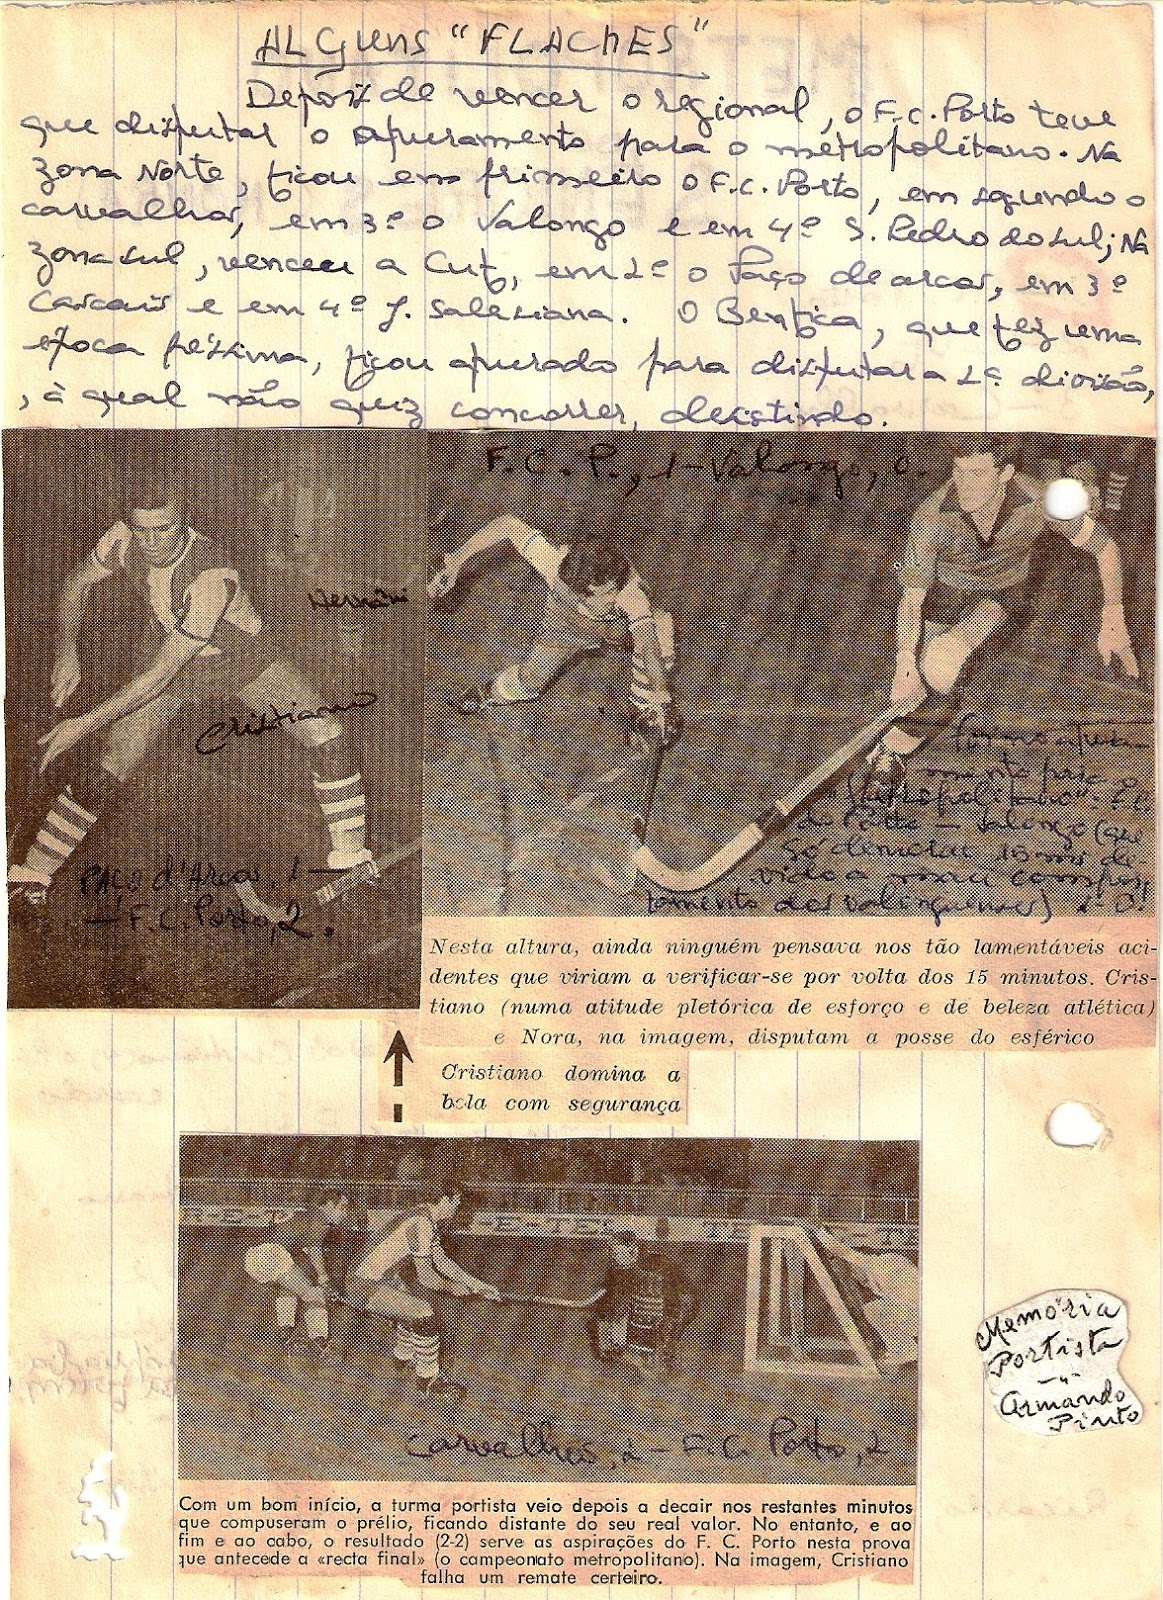 ALGUNS "FLACHES"
Depois de vencer o regional, o F.C. Porto teve
que disputar o apuramento para o metropolitano. Na
zona Norte, ficou em primeiro o F.C. Porto, em segundo o
Carvalhos, em 3º o Valongo e em 4º S. Pedro do Sul; Na
zona sul, venceu a Cuf, em 2º o Paço de arcos, em 3º
Cascais e em 4º J. Salesiana. O Benfica, que fez uma
época péssima, ficou apurado para disputar a 2ª divisão,
, à qual não quiz concorrer, desistindo.
F.C.P., 1 - Valongo, 0.
Cristiano
PAÇO d'Arcos, 1 -
- F.C. Porto, 2.
para o
"Metropolitano": F.C.
do Porto - Valongo (que
só demorou 15 m. de-
vido a mau compor-
tamento dos Valonguenses) 1-0!
Nesta altura, ainda ninguém pensava nos tão lamentáveis aci-
dentes que viriam a verificar-se por volta dos 15 minutos. Cris-
tiano (numa atitude pletórica de esforço e de beleza atlética)
e Nora, na imagem, disputam a posse do esférico
Cristiano domina a
bola com segurança
Carvalhos, 2 - F.C. Porto, 2
Memória
Portista
-"-
Armando
Pinto
Com um bom início, a turma portista veio depois a decair nos restantes minutos
que compuseram o prélio, ficando distante do seu real valor. No entanto, e ao
fim e ao cabo, o resultado (2-2) serve as aspirações do F. C. Porto nesta prova
que antecede a «recta final» (o campeonato metropolitano). Na imagem, Cristiano
falha um remate certeiro.